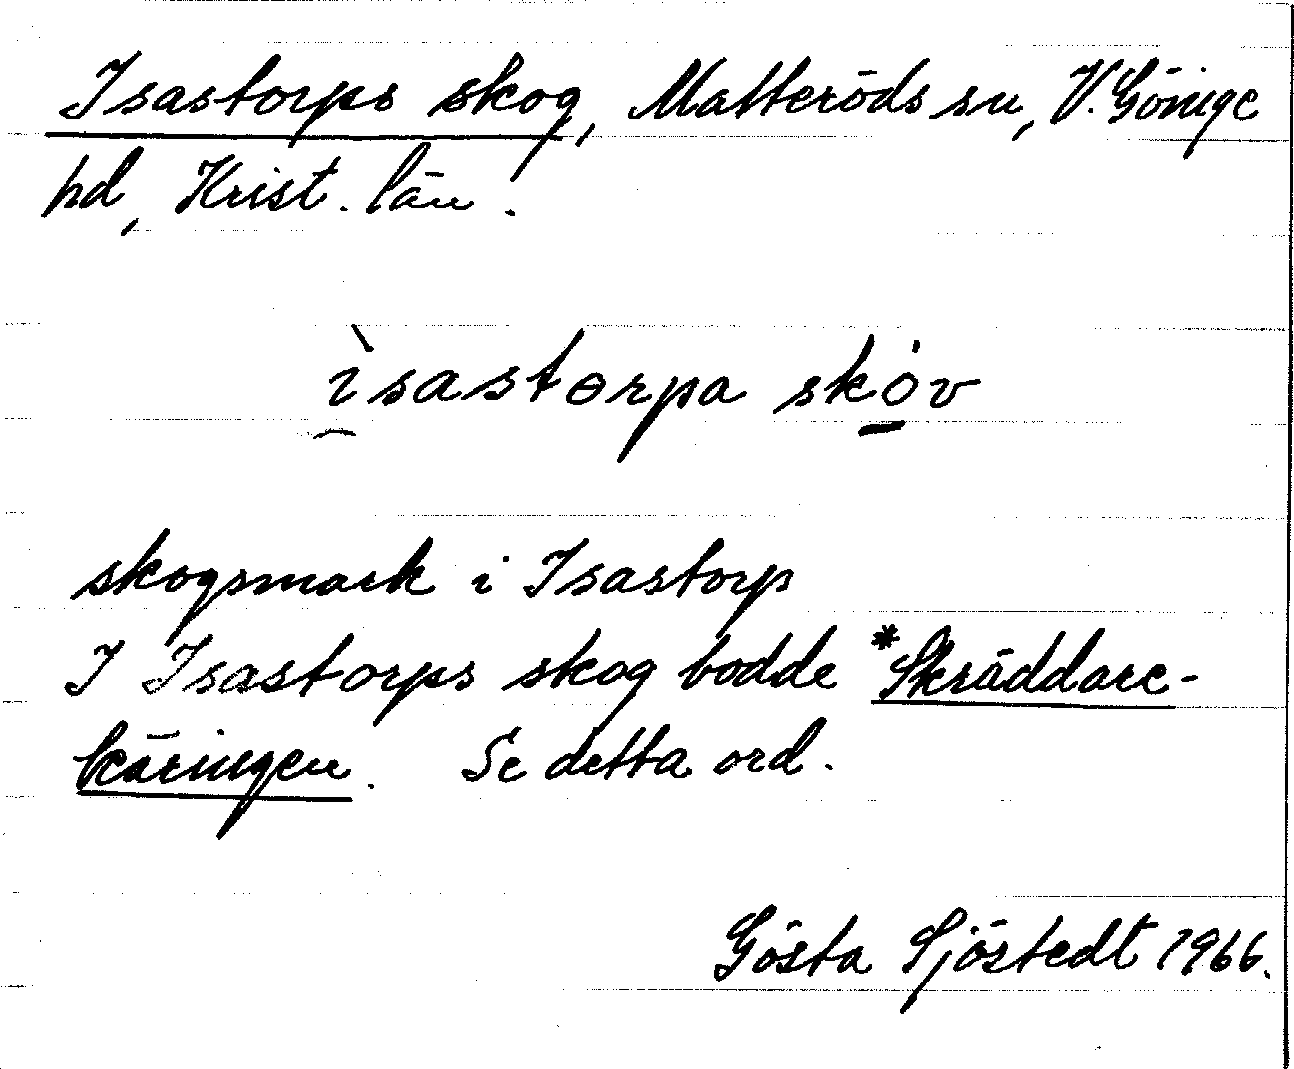 Isastorps skog, Matteröds sn, V. Göinge
hd, Krist. län.
ìsastorpa skóv
skogsmark i Isastorp
I Isastorps skog bodde *Skräddare-
käringen. Se detta ord.
Gösta Sjöstedt 1966.